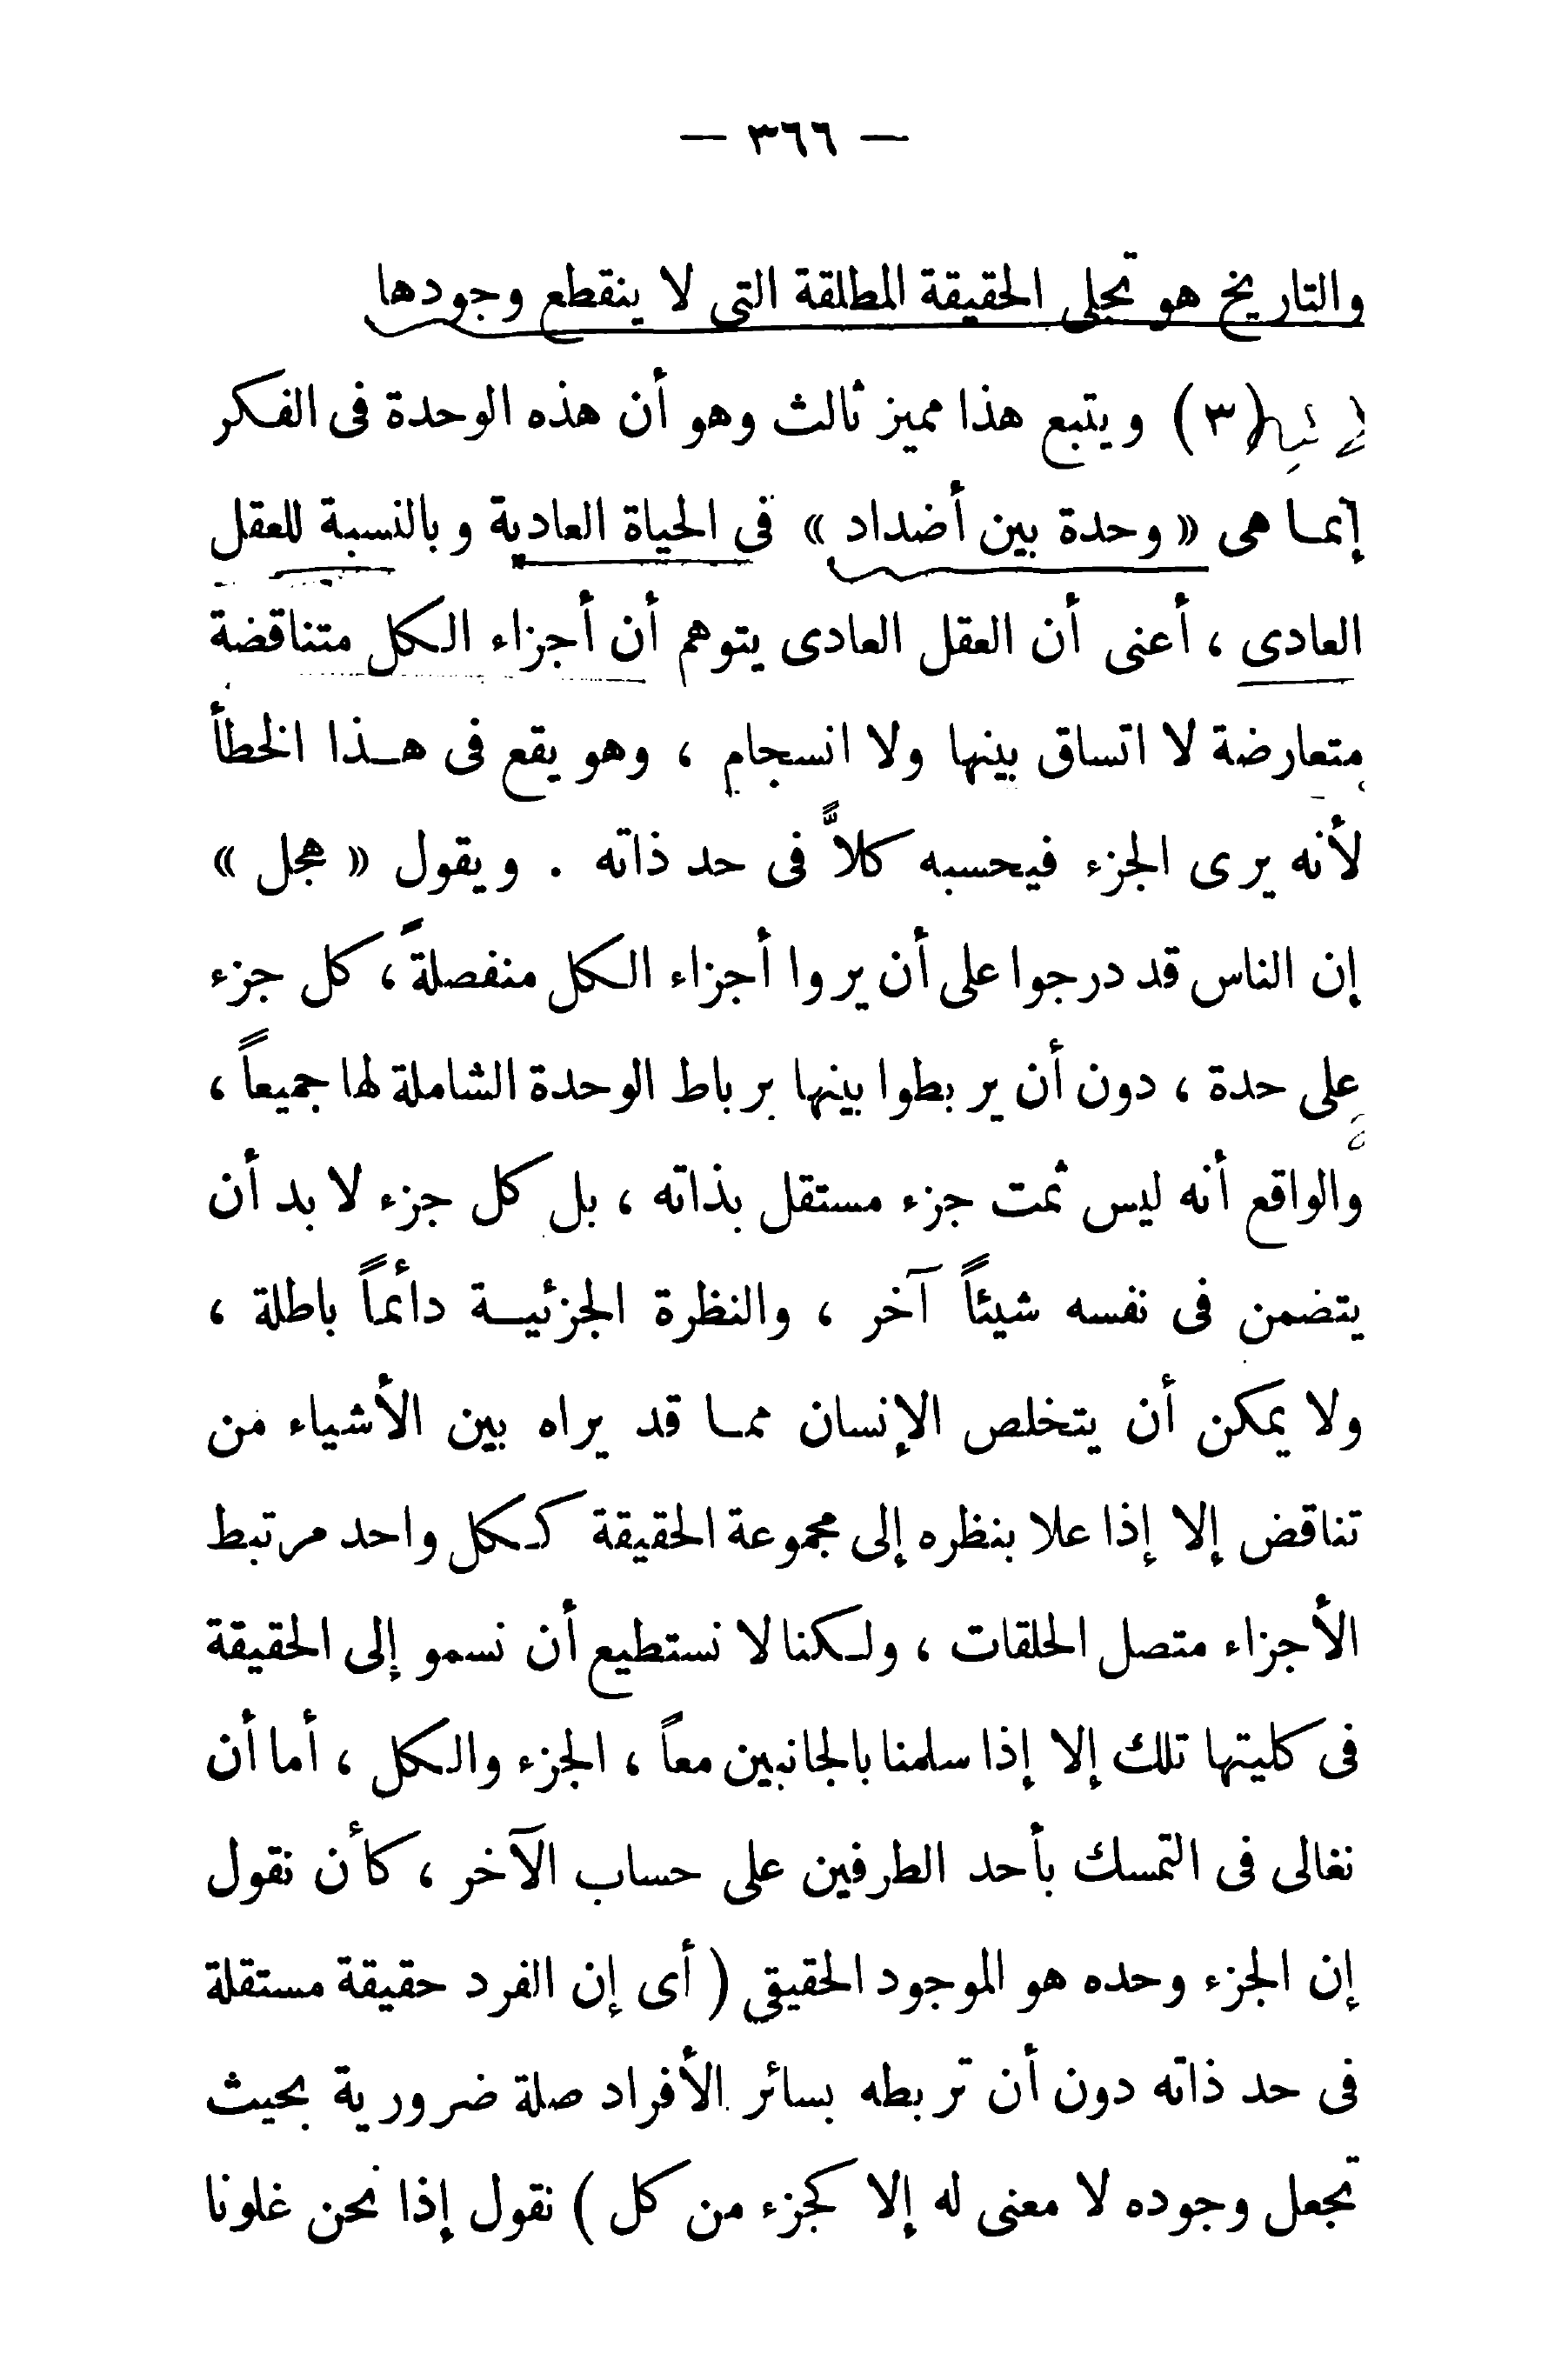 — ٣٦٦ —
والتاريخ هو تجلى الحقيقة المطلقة التى لا ينقطع وجودها
(٣) ويتبع هذا مميز ثالث وهو أن هذه الوحدة فى الفكر
إنما هى « وحدة بين أضداد » فى الحياة العادية وبالنسبة للعقل
العادى ، أعنى أن العقل العادى يتوهم أن أجزاء الكل متناقضة
متعارضة لا اتساق بينها ولا انسجام ، وهو يقع فى هذا الخطأ
لأنه يرى الجزء فيحسبه كلاًّ فى حد ذاته . ويقول « هجل »
إن الناس قد درجوا على أن يروا أجزاء الكل منفصلةً ، كل جزء
على حدة ، دون أن يربطوا بينها برباط الوحدة الشاملة لها جميعاً ،
والواقع أنه ليس ثمت جزء مستقل بذاته ، بل كل جزء لا بد أن
يتضمن فى نفسه شيئاً آخر ، والنظرة الجزئية دائماً باطلة ،
ولا يمكن أن يتخلص الإنسان مما قد يراه بين الأشياء من
تناقض إلا إذا علا بنظره إلى مجموعة الحقيقة ككل واحد مرتبط
الأجزاء متصل الحلقات ، ولكنا لا نستطيع أن نسمو إلى الحقيقة
فى كليتها تلك إلا إذا سلمنا بالجانبين معاً ، الجزء والكل ، أما أن
نغالى فى التمسك بأحد الطرفين على حساب الآخر ، كأن نقول
إن الجزء وحده هو الموجود الحقيقى ( أى إن الفرد حقيقة مستقلة
فى حد ذاته دون أن تربطه بسائر الأفراد صلة ضرورية بحيث
تجعل وجوده لا معنى له إلا كجزء من كل ) نقول إذا نحن غلونا